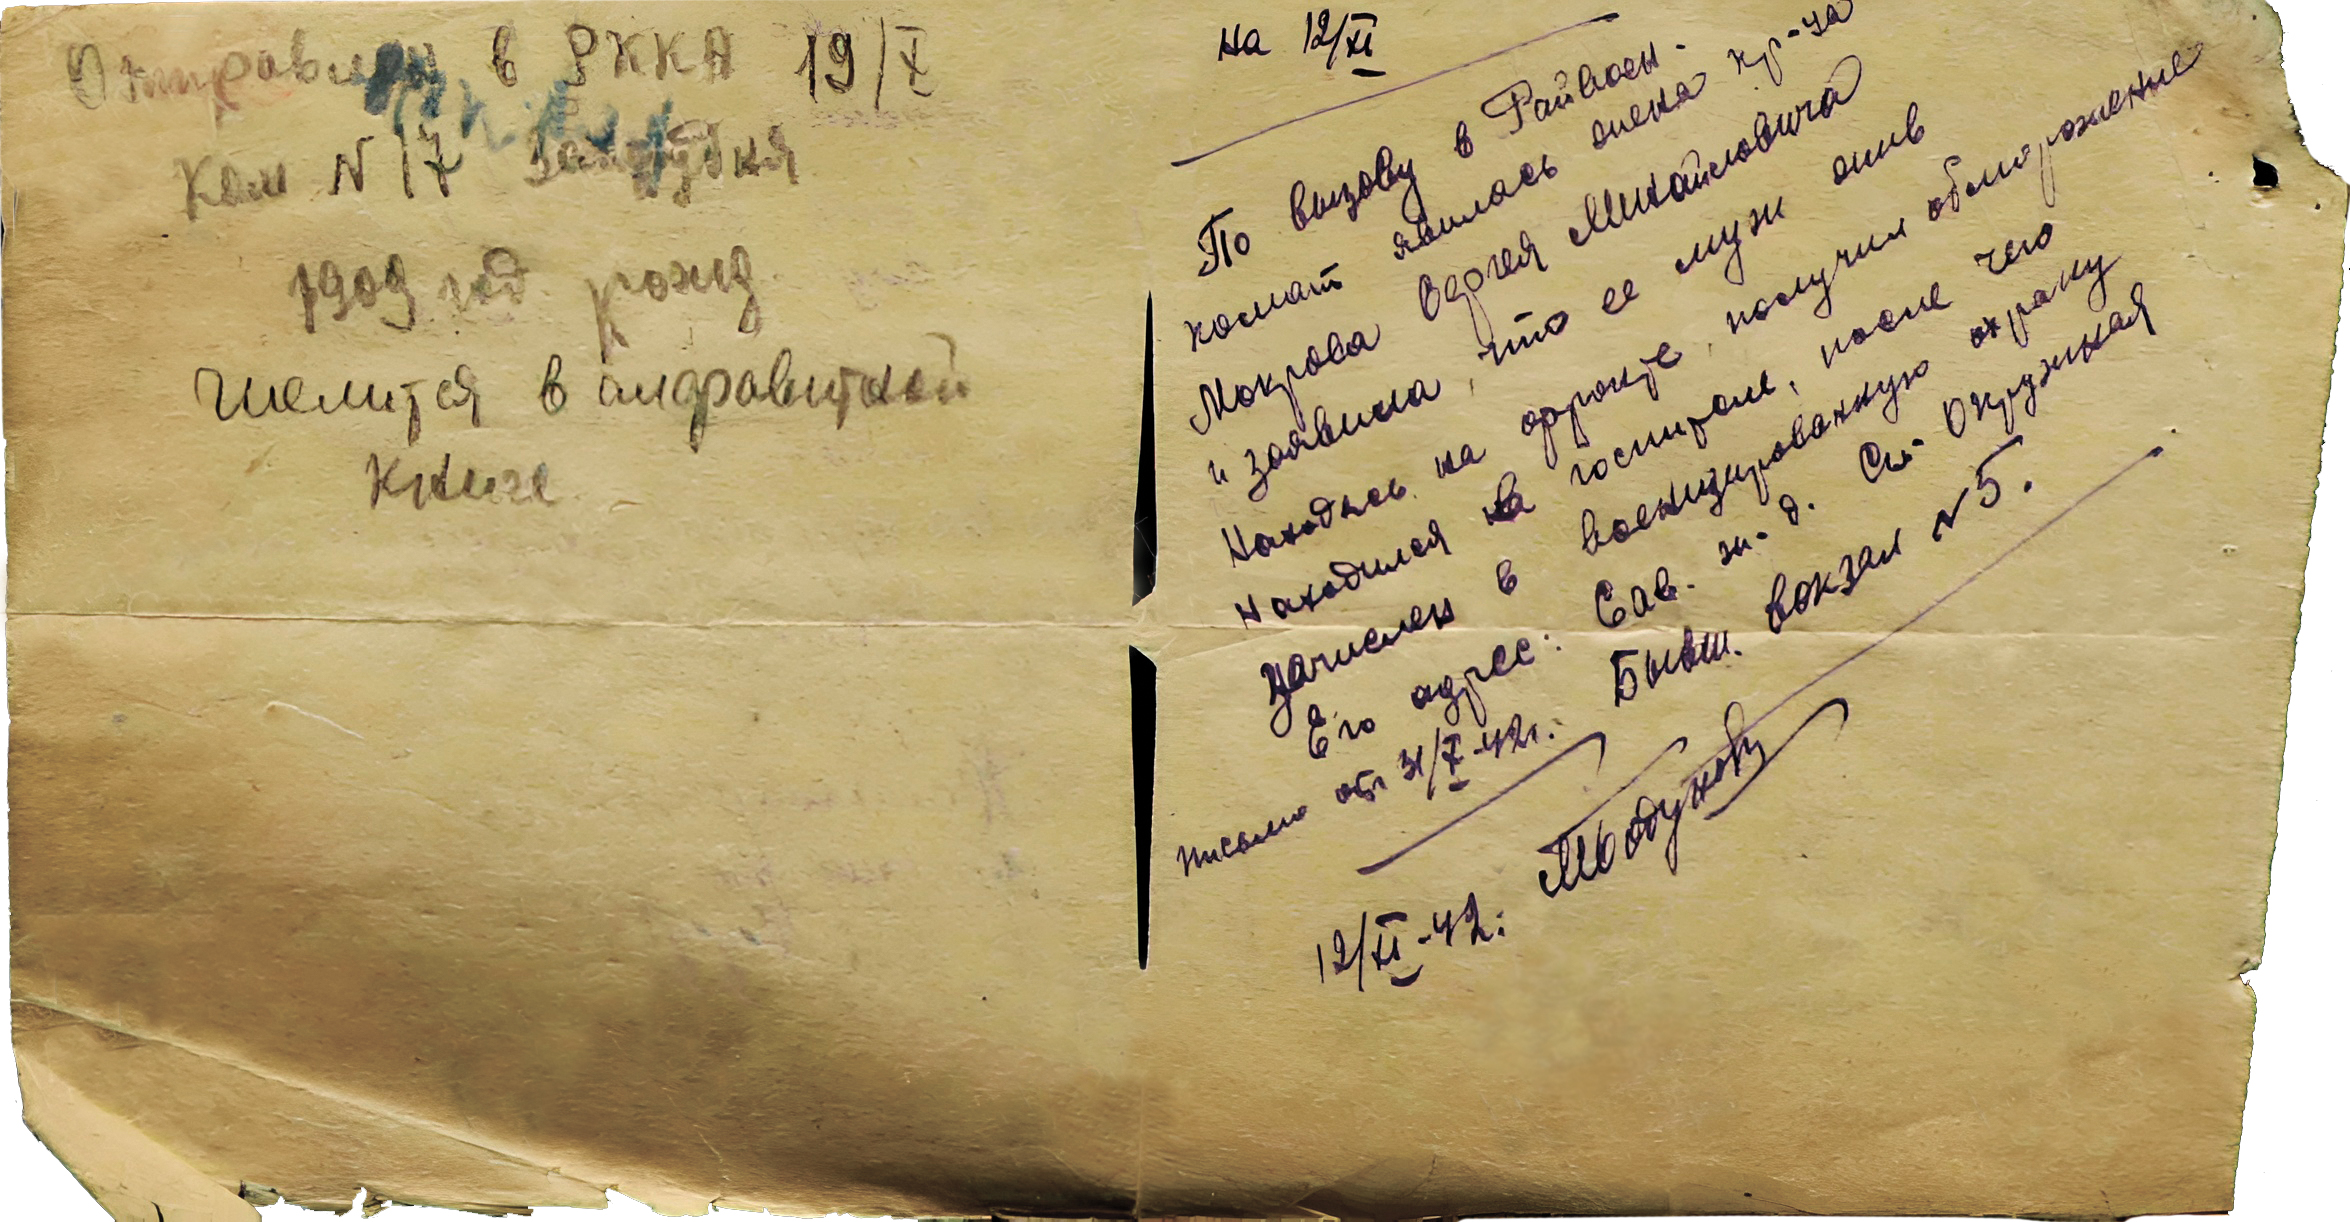 Отправлен в РККА 19/X
Ком N 17
1909 год рожд.
числится в алфавитной
книге
на 12/XI
По вызову в Райвоен-
комат явилась жена кр-ца
Мокрова Сергея Михайловича
и заявила, что ее муж жив
Находясь на фронте, получил обморожение
Находился на госпитале, после чего
зачислен в военизированную охрану
Его адрес: Сав. ж.д. Ст. Окружная
письмо от 31/X-42г. Бывш. вокзал N 5.
12/XI-42.